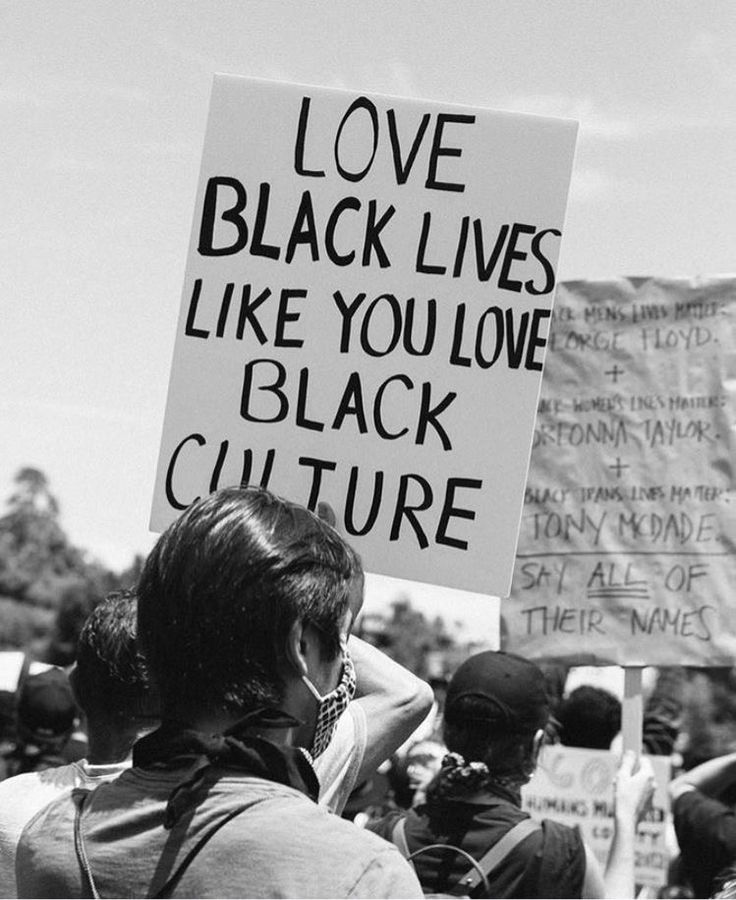 LOVE
BLACK LIVES
LIKE YOU LOVE
BLACK
CULTURE
MENS LIVES MATTER:
FLOYD.
+
LIVES MATTER:
TAYLOR.
+
BLACK TRANS LIVES MATTER:
TONY MCDADE.
SAY ALL OF
THEIR NAMES
HUMANS